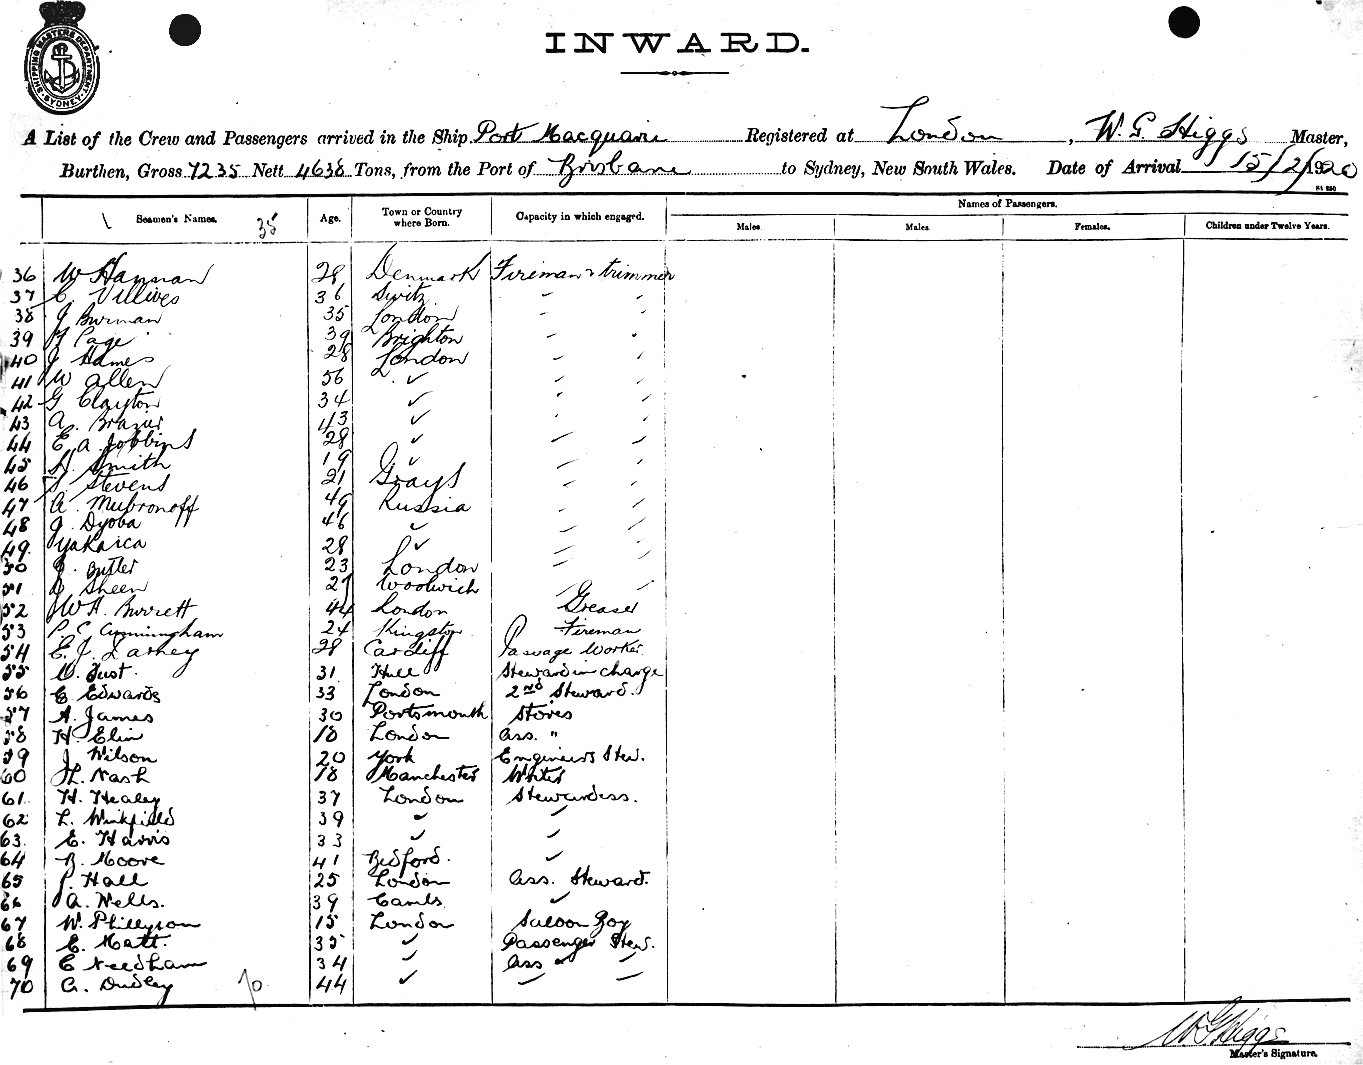 SHIPPING MASTERS DEPARTMENT SYDNEY
INWARD.
A List of the Crew and Passengers arrived in the Ship Port Macquarie Registered at London, W. G. Higgs Master,
Burthen, Gross 7235 Nett 4638 Tons, from the Port of Brisbane to Sydney, New South Wales. Date of Arrival 15/2/1920
Seamen's Names. 35 Age. Town or Country where Born. Capacity in which engaged. Names of Passengers.
Males Males Females. Children under Twelve Years.
36 W Hannan 28 Denmark Fireman & trimmer
37 C. Villives 36 Switz. " "
38 J Burman 35 London " "
39 Page 39 Brighton " "
40 J Hames 28 London " "
41 W Allen 56 ✓ " "
42 G Clayton 34 ✓ " "
43 A. Brazier 43 ✓ " "
44 E a Jobbins 28 ✓ " "
45 Smith 19 ✓ " "
46 S. Stevens 21 Grays " "
47 A. Mubronoff 49 Russia " "
48 J. Dyoba 46 ✓ " "
49. Yakaica 28 ✓ " "
50 J. Butler 23 London " "
51 D Sheen 27 Woolwich " "
52 W H. Burrett 44 London Greaser
53 P. C Cunningham 24 Kingston Fireman
54 E. J. Larkey 28 Cardiff Passage Worker
55 Just. 31 Hull Steward in charge
56 C Edwards 33 London 2nd Steward.
57 A. James 30 Portsmouth Stores
58 H. Elin 18 London Ass. "
59 J Wilson 20 York Engineers Stew.
60 H. Nash 18 Manchester Writer
61 H. Healey 37 London Stewardess.
62 L. Winkfield 39 ✓ ✓
63. E. Harris 33 ✓ ✓
64 B. Moore 41 Bedford. ✓
65 P. Hall 25 London Ass. Steward.
66 A. Wells. 39 Cambs. ✓
67 W. Phillyson 15 London Saloon Boy
68 E. Matt. 35 ✓ Passenger Stew.
69 C Needham 34 ✓ Ass " "
70 G. Dudley 70 44 ✓ " "
W G Higgs
Master's Signature.